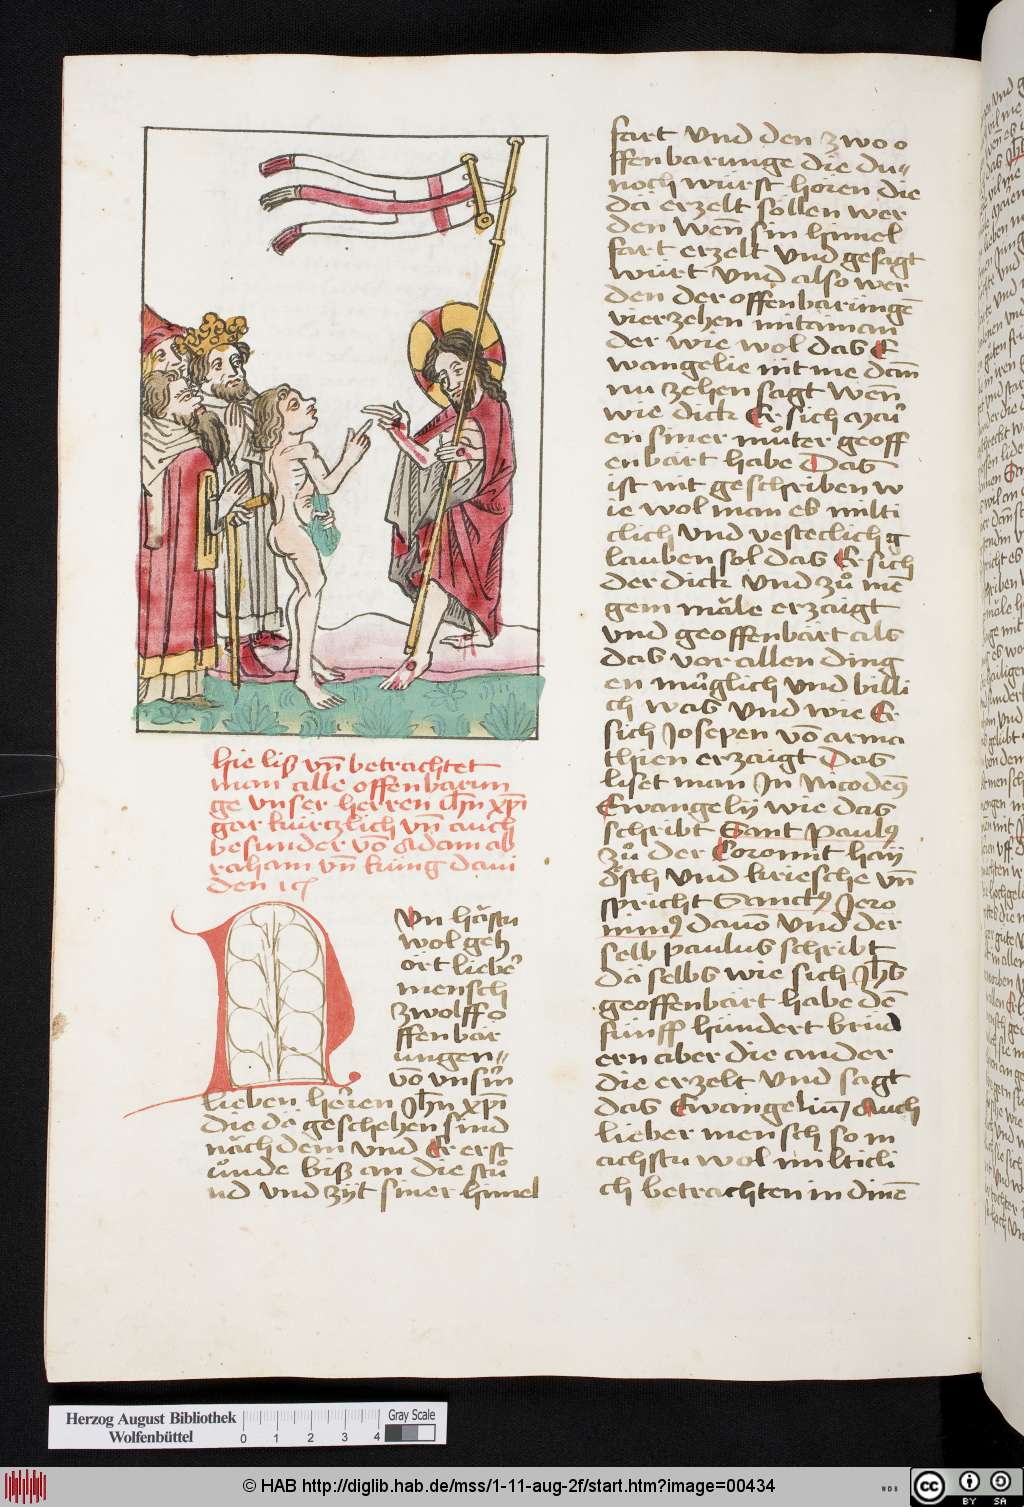 hie liß vn̄ betrachtet
man alle offenbarun
ge vnser herren Jh̄n xp̄i
gar kürczlich vn̄ auch
besunder vō Adam ab
raham vn̄ küng daui
den ıc
Nvn hästu
wol geh
ört lieber
mensch
zwolff o
ffenbar
ungen〃
vō vnsrn̄
lieben herren Jh̄n xp̄i
die da geschehen sind
nach dem vnd Er erst
ůnde biß an die stů
nd vnd zijt siner himel
fart vnd den zwo o
ffenbarunge die du〃
noch würst horen die
da erzelt söllen wer
den wen̄ sin himel
fart erzelt vnd gesagt
würt vnd also wer
den der offenbarungē
vierzehen mitainan
der wie wol das E
wangelie nit me dan̄
nu zehen sagt wen̄
wie dick Er sich mari
en siner můter geoff
enbart habe Das
ist nit geschriben w
ie wol man es milti
clich vnd vesteclich g
lauben sol das Er sich
der dick vnd zů mē
gem måle erzaigt
vnd geoffenbart als
das vor allen ding
en muglich vnd billi
ch was vnd wie Er
sich Josepen vō arma
thien erzaigt Das
liset man Jn Nicodem9
Ewangelij wie das
schribt Sant Paul9
zů der
vnd kriesche vn̄
spricht Sanct9 Jero
nim9 dauō vnd der
selb paulus schribt
da selbs wie sich Jh̄s
geoffenbart habe dē
fünff hundert brüd
ern aber die ander
die erzelt vnd sagt
das Ewangelium Auch
lieber mensch so m
achstu wol milticli
ch betrachten in dinē
Herzog August Bibliothek
Wolfenbüttel
0 1 2 3 4
Gray Scale
© HAB http://diglib.hab.de/mss/1-11-aug-2f/start.htm?image=00434
WDB
cc BY SA